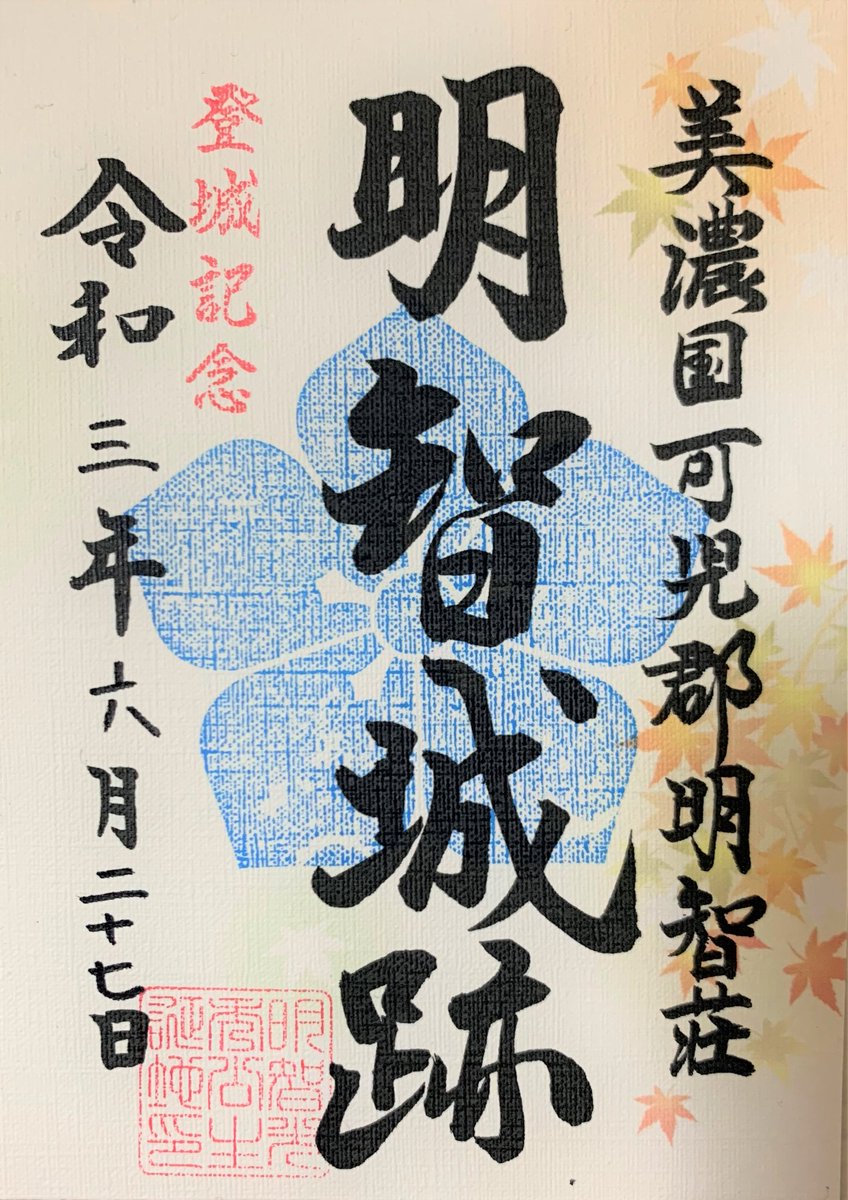 美濃国可児郡明智荘
明智城跡
登城記念
令和三年六月二十七日
明智光
秀公生
誕地印